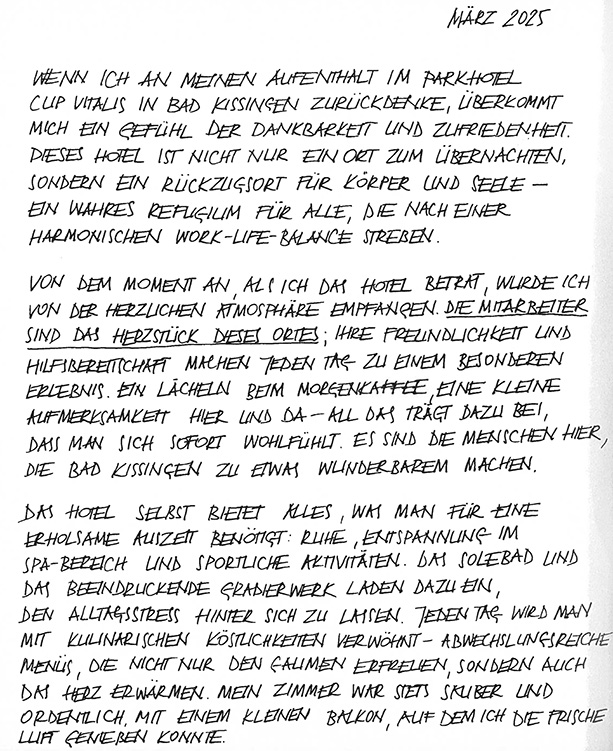 MÄRZ 2025
WENN ICH AN MEINEN AUFENTHALT IM PARKHOTEL
CUP VITALIS IN BAD KISSINGEN ZURÜCKDENKE, ÜBERKOMMT
MICH EIN GEFÜHL DER DANKBARKEIT UND ZUFRIEDENHEIT.
DIESES HOTEL IST NICHT NUR EIN ORT ZUM ÜBERNACHTEN,
SONDERN EIN RÜCKZUGSORT FÜR KÖRPER UND SEELE –
EIN WAHRES REFUGIUM FÜR ALLE, DIE NACH EINER
HARMONISCHEN WORK-LIFE-BALANCE STREBEN.
VON DEM MOMENT AN, ALS ICH DAS HOTEL BETRAT, WURDE ICH
VON DER HERZLICHEN ATMOSPHÄRE EMPFANGEN. DIE MITARBEITER
SIND DAS HERZSTÜCK DIESES ORTES; IHRE FREUNDLICHKEIT UND
HILFSBEREITSCHAFT MACHEN JEDEN TAG ZU EINEM BESONDEREN
ERLEBNIS. EIN LÄCHELN BEIM MORGENKAFFEE, EINE KLEINE
AUFMERKSAMKEIT HIER UND DA – ALL DAS TRÄGT DAZU BEI,
DASS MAN SICH SOFORT WOHLFÜHLT. ES SIND DIE MENSCHEN HIER,
DIE BAD KISSINGEN ZU ETWAS WUNDERBAREM MACHEN.
DAS HOTEL SELBST BIETET ALLES, WAS MAN FÜR EINE
ERHOLSAME AUSZEIT BENÖTIGT: RUHE, ENTSPANNUNG IM
SPA-BEREICH UND SPORTLICHE AKTIVITÄTEN. DAS SOLEBAD UND
DAS BEEINDRUCKENDE GRADIERWERK LADEN DAZU EIN,
DEN ALLTAGSSTRESS HINTER SICH ZU LASSEN. JEDEN TAG WIRD MAN
MIT KULINARISCHEN KÖSTLICHKEITEN VERWÖHNT – ABWECHSLUNGSREICHE
MENÜS, DIE NICHT NUR DEN GAUMEN ERFREUEN, SONDERN AUCH
DAS HERZ ERWÄRMEN. MEIN ZIMMER WAR STETS SAUBER UND
ORDENTLICH, MIT EINEM KLEINEN BALKON, AUF DEM ICH DIE FRISCHE
LUFT GENIEßEN KONNTE.